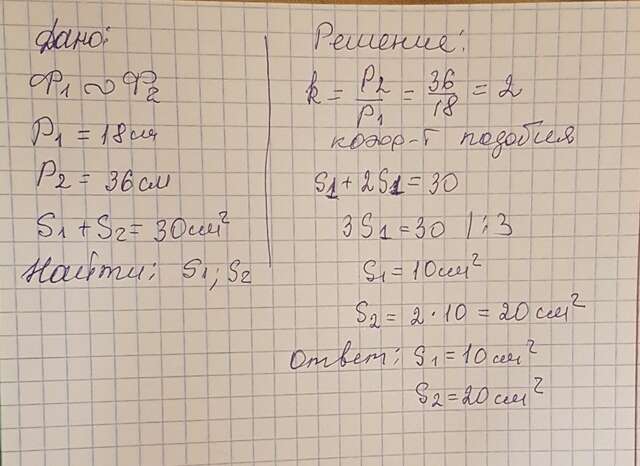 Дано:
Ф₁ ∾ Ф₂
P₁ = 18см
P₂ = 36см
S₁ + S₂ = 30см²
Найти: S₁; S₂
Решение:
k = P₂/P₁ = 36/18 = 2
коэф-т подобия
S₁ + 2S₁ = 30
3S₁ = 30 | : 3
S₁ = 10см²
S₂ = 2 · 10 = 20см²
Ответ: S₁ = 10см²
S₂ = 20см²